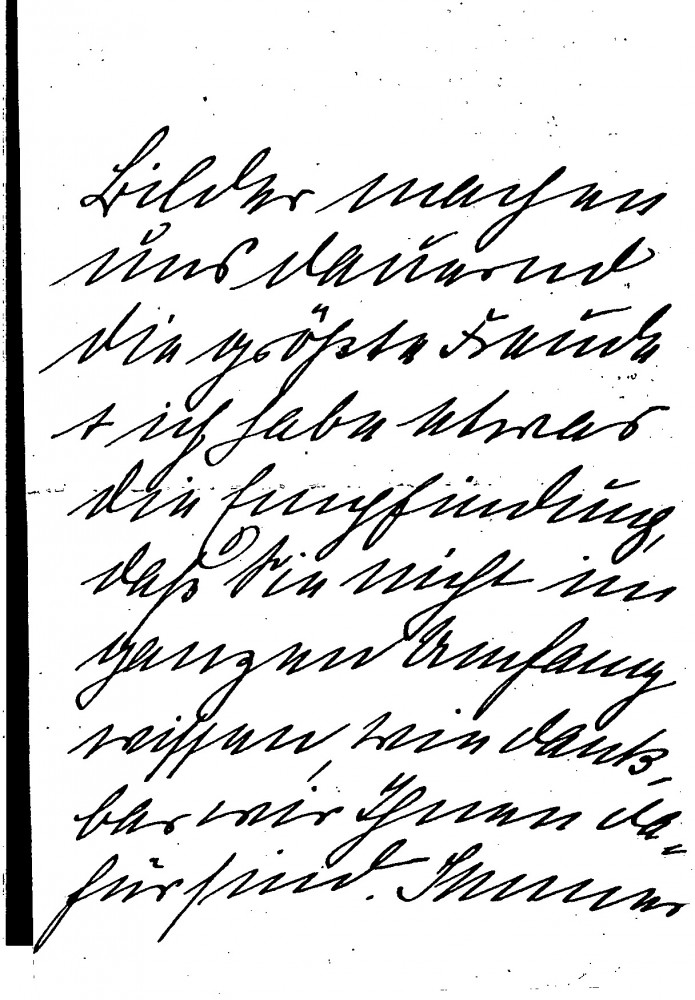 Bilder machen
uns dauernd
die größte Freude
+ ich habe etwas
die Empfindung,
daß Sie nicht im
ganzen Umfang
wissen, wie dank-
bar wir Ihnen da-
für sind. Immer